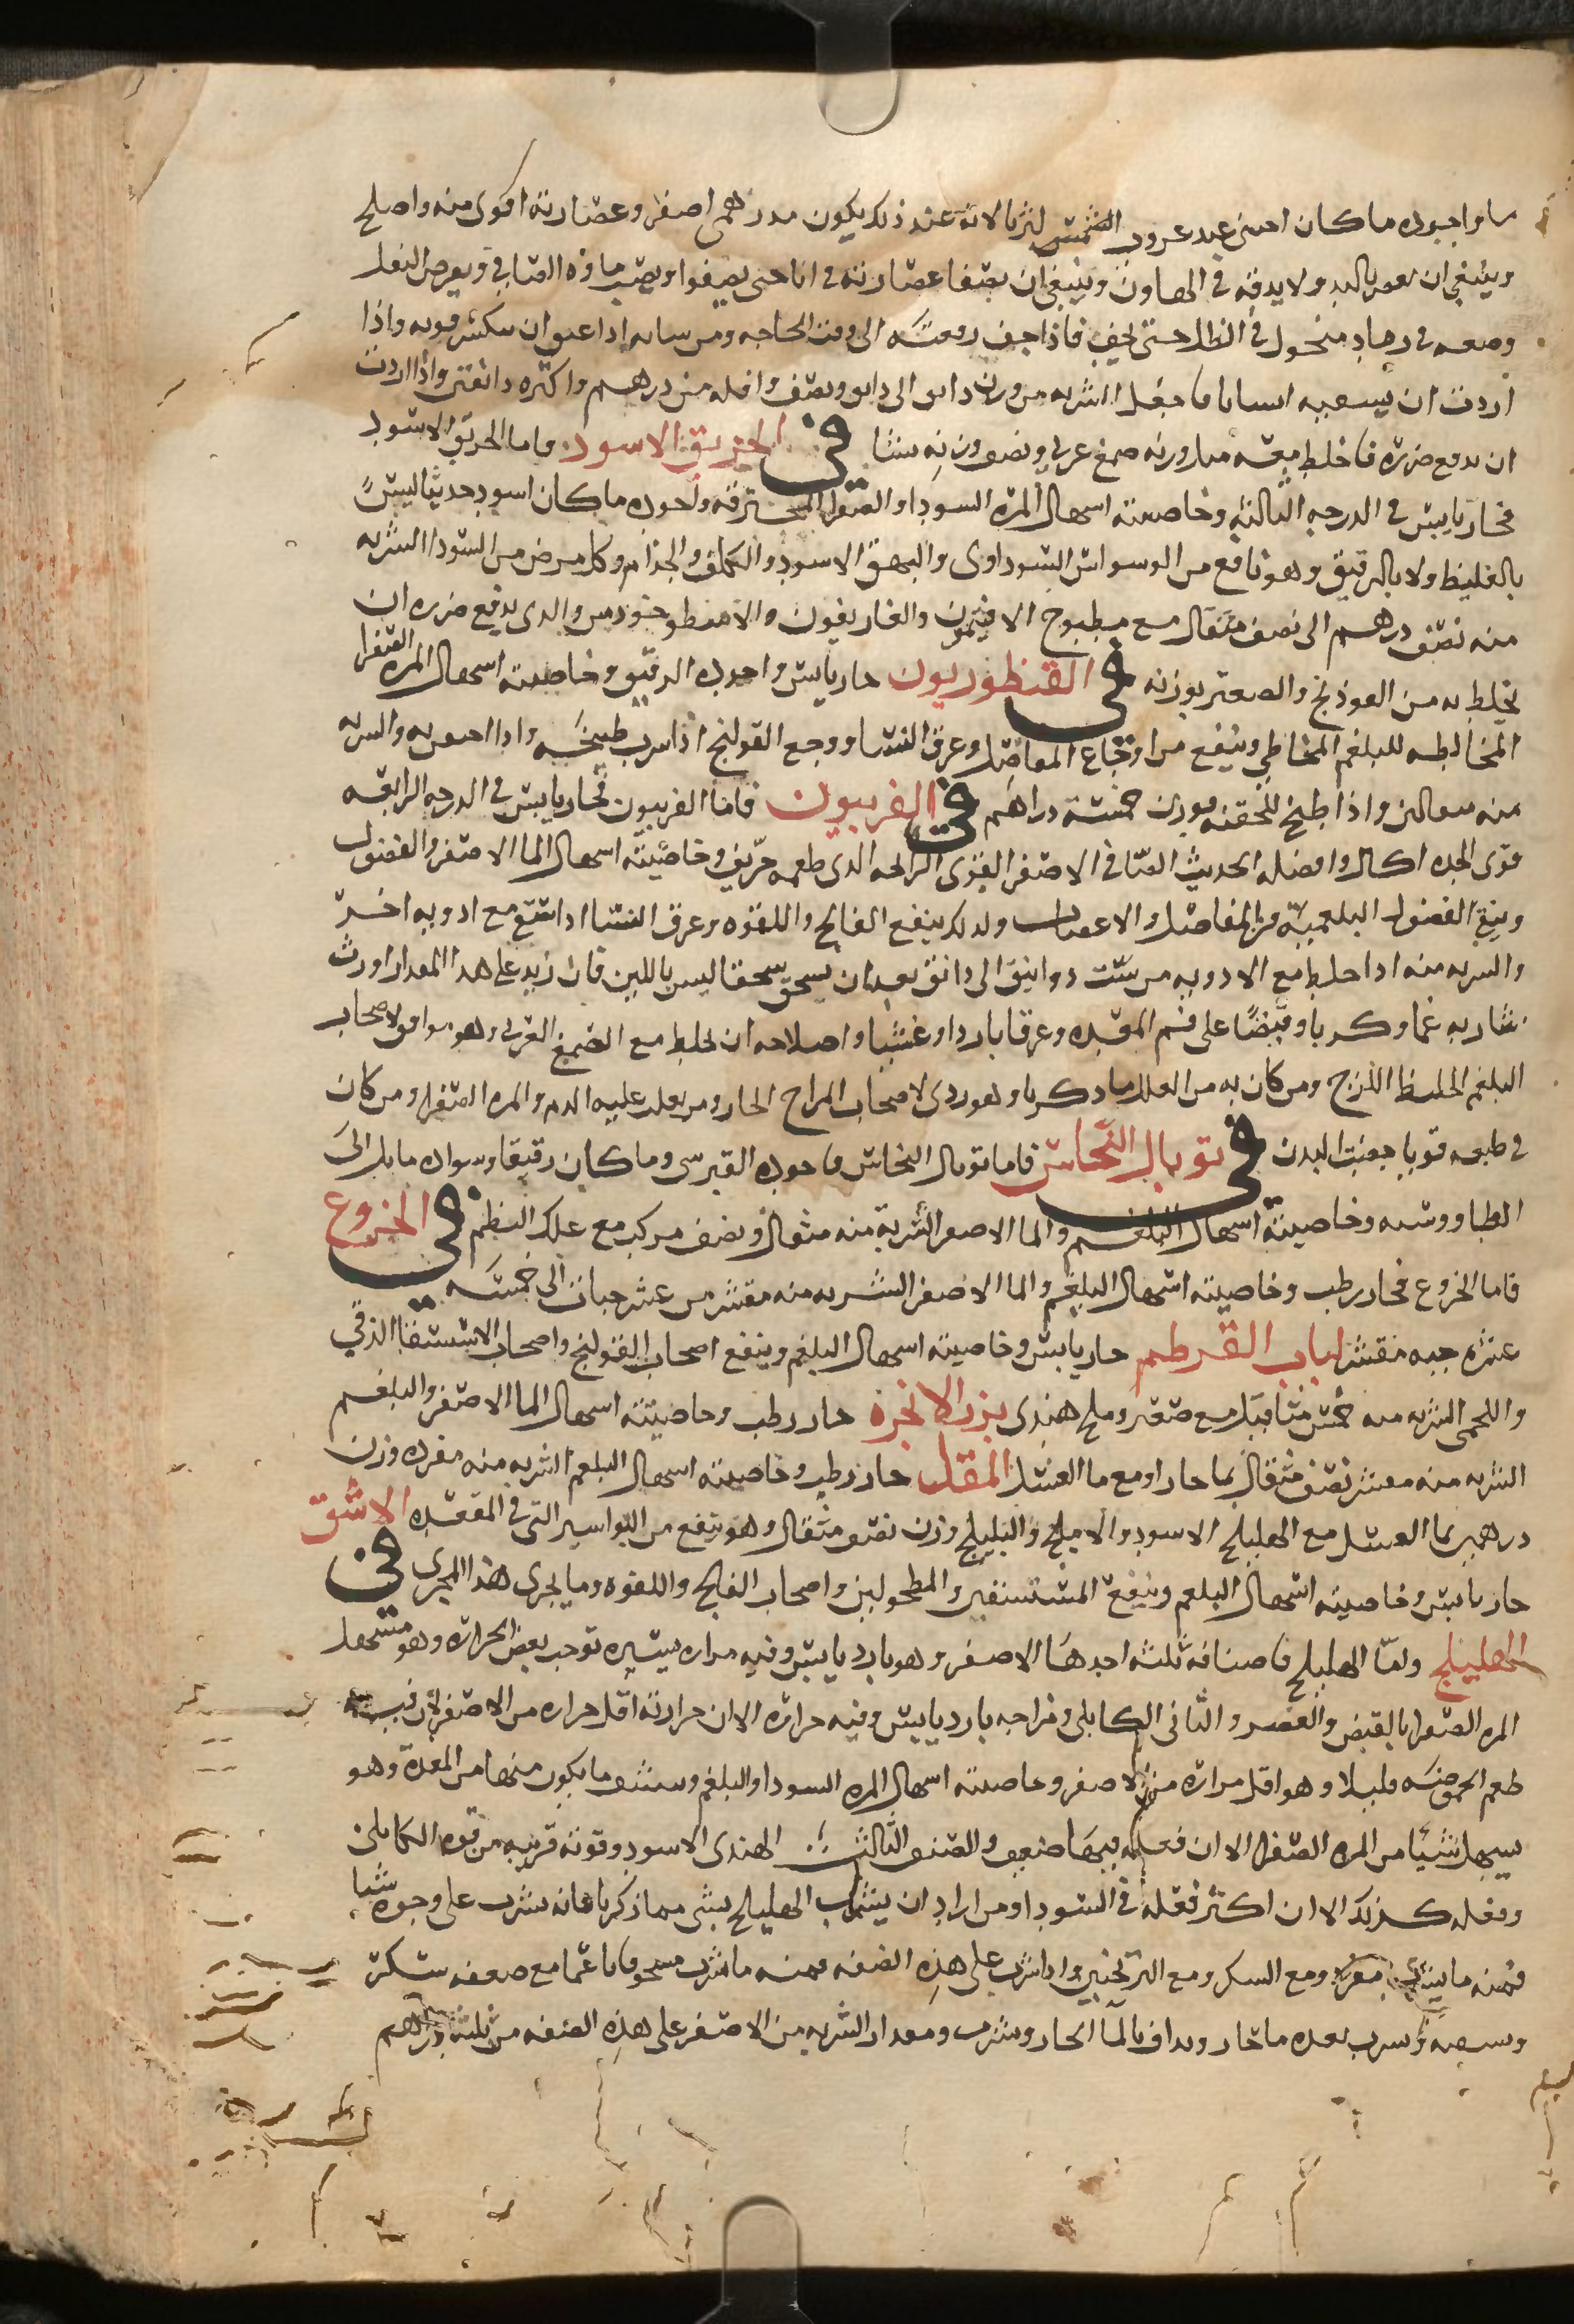 ما واجبوده ما كان اجتنى عند غروب الشمس لثريا لانه عند ذلك يكون مدرهمى اصفر وعصارته اقوى منه واصلح
وينبغى ان يعصر باليد ولا يدقه فى الهاون وينبغى ان يصفا عصارته فى اناحتى يصفوا ويصب ماوه الصافى ويعرض الثفل
وضعه فى رماد منخول فى الظل حتى يجف فاذا جف رفعته الى وقت الحاجه ومن شانه اذا عتق ان تنكسر قوته واذا
اردت ان تسقيه انسانا فاجعل الشربه من وزن دانق الى دانق ونصف واقله من درهم واكثره دانقين واذا اردت
ان تدفع ضرره فاخلط معه مثل وزنه صمغ عربى ونصف وزنه نشا فى الخربق الاسود. واما الخربق الاسود
فحار يابس فى الدرجه الثالثه وخاصيته اسهال المره السودا والصفرا المحترقه واجوده ما كان اسود حديثا ليس
بالغليظ ولا بالرقيق وهو نافع من الوسواس السوداوى والبهق الاسود والكلف والجذام وكل مرض من السودا الشربه
منه نصف درهم الى نصف مثقال مع مطبوخ الافتيمون والغاريقون والاسطوخودس والدى يدفع ضرره ان
يخلط به من الفوذنج والصعتر بوزنه فى القنطوريون حار يابس واجوده الرقيق وخاصيته اسهال المره الصفرا
المخالطه للبلغم المخاطى وينفع من اوجاع المفاصل وعرق النسا ووجع القولنج اذا شرب طبيخه واذا احتقن به والشربه
منه مثقالين واذا طبخ للحقنه فوزن خمسة دراهم فى الفربيون فاما الفربيون فحار يابس فى الدرجه الرابعه
قوى الحده اكال وافضله الحديث الصافى الاصفر القوى الرائحه الدى طعمه حريف وخاصيته اسهال الما الاصفر والفضول
وينقى الفضول البلغميه من المفاصل والاعصاب ولدلك ينفع الفالج واللقوه وعرق النسا اذا شرب مع ادويه اخر
والشربه منه اذا خلط مع الادويه من ستت دوانيق الى دانق بعد ان يسحق سحقا ليس باللين فان زيد على هدا المقدار اورث
شاربه غما وكربا وقبضا على فم المعده وعرقا باردا وغشيا واصلاحه ان يخلط مع الصمغ العربى وهو موافق لاصحاب
البلغم الغليظ اللزج ومن كان به من العلل ما دكرنا وهو ردى لاصحاب المزاج الحار ومن يغلب عليه الدم والمره الصفرا ومن كان
فى طبعه قويا جفيف البدن فى توبال النحاس فاما توبال النحاس فاجوده القبرسى وما كان رقيقا وسواده مايل الى
الطاووسيه وخاصيته اسهال البلغم والما الاصفر الشربه منه مثقال ونصف مركب مع علك البطم فى الخروع
فاما الخروع فحار رطب وخاصيته اسهال البلغم والما الاصفر الشربه منه مقشر من عشر حبات الى خمسه
عشره حبه مقشر لباب القرطم حار يابس وخاصيته اسهال البلغم وينفع اصحاب القولنج واصحاب الاستسقا الزقى
واللحمى الشربه منه خمس مثاقيل مع صعتر وملح هندى بزر الانجره حار رطب وخاصيته اسهال الما الاصفر والبلغم
الشربه منه مقشر نصف مثقال بما حار او مع ما العسل المقل حار رطب وخاصيته اسهال البلغم الشربه منه مفرده وزن
درهمين بما العسل مع الهليلج الاسود والاملج والبليلج وزن نصف مثقال وهو ينفع من البواسير التى فى المقعده الاشق
حار يابس وخاصيته اسهال البلغم وينفع المستسقين والمطحولين واصحاب الفالج واللقوه وما يجرى هذا المجرى فى
الهليلج وامّا الهليلج فاصنافه ثلثه احدها الاصفر وهو بارد يابس وفيه مراره يسيره توجب بعض الحراره وهو مسهل
المره الصفرا بالقبض والعصر والثانى الكابلى ومزاجه بارد يابس وفيه حراره الا ان حرارته اقل حراره من الاصفر لان فيه
طعم الحموضه قليلا وهو اقل مراره من الاصفر وخاصيته اسهال المره السودا والبلغم وينشف ما يكون منهما من المعدة وهو
يسهل شيا من المره الصفرا الا ان فعله فيها ضعيف والصنف الثالث الهندى الاسود وقوته قريبه من قوه الكابلى
وفعله كذلك الا ان اكثر فعله فى السودا ومن اراد ان يشرب الهليلج بشى مما ذكرنا فانه يشرب على وجوه شتا
فمنه ما يشرب مفرد ومع السكر ومع الترنجبين واذا شرب على هذه الصفه فمنه ما شرب مسحوقا ناعما مع ضعفه سكر
ويسفه وشرب بعده ما حار ويداف بالما الحار ويشرب ومقدار الشربه من الاصفر على هذه الصفه من ثلثة دراهم